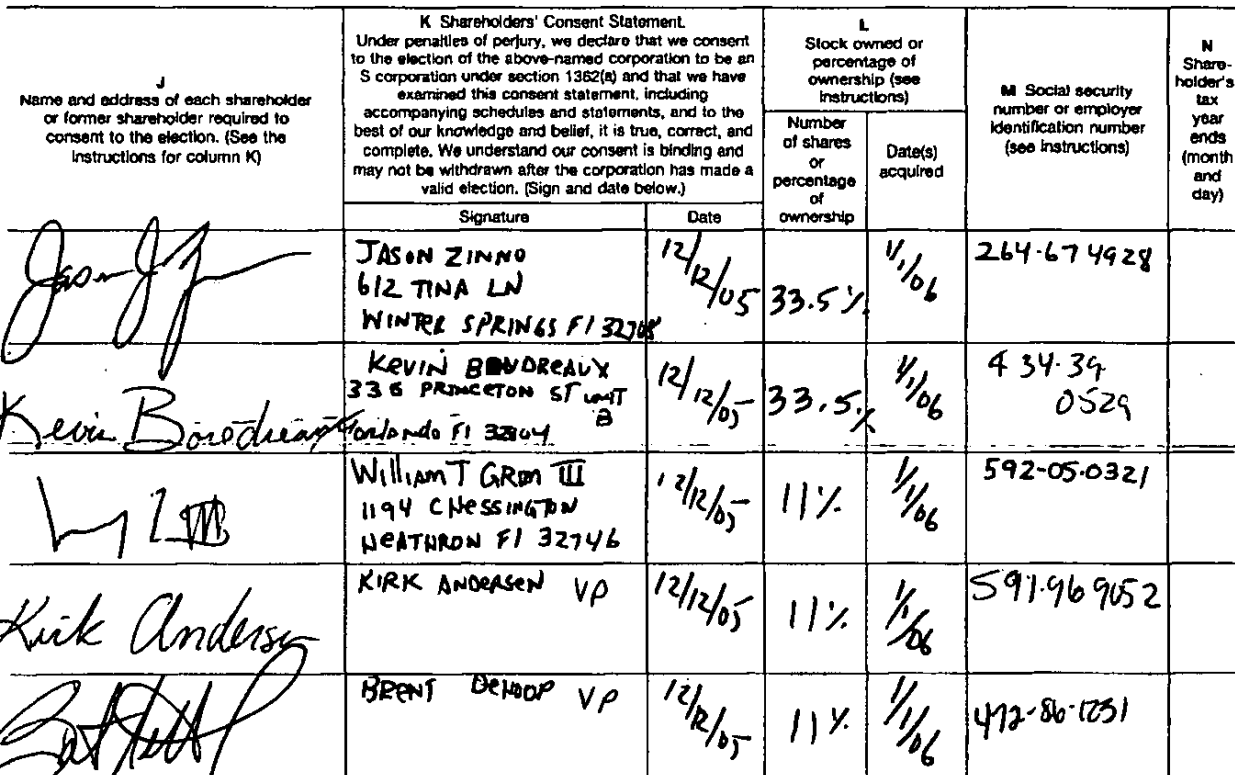 J
Name and address of each shareholder
or former shareholder required to
consent to the election. (See the
instructions for column K)
K Shareholders' Consent Statement.
Under penalties of perjury, we declare that we consent
to the election of the above-named corporation to be an
S corporation under section 1362(a) and that we have
examined this consent statement, including
accompanying schedules and statements, and to the
best of our knowledge and belief, it is true, correct, and
complete. We understand our consent is binding and
may not be withdrawn after the corporation has made a
valid election. (Sign and date below.)
Signature
Date
L
Stock owned or
percentage of
ownership (see
instructions)
Number
of shares
or
percentage
of
ownership
Date(s)
acquired
M Social security
number or employer
identification number
(see instructions)
N
Share-
holder's
tax
year
ends
(month
and
day)
JASON ZINNO
612 TINA LN
WINTER SPRINGS Fl 32708
12/12/05
33.5%
1/1/06
264-67 4928
Kevin Boudreaux
KEVIN BOUDREAUX
336 PRINCETON ST UNIT
B
orlando Fl 32804
12/12/05
33.5%
1/1/06
434-39
0529
William T GROM III
1194 CHESSINGTON
HEATHRON Fl 32746
12/12/05
11%
1/1/06
592-05-0321
Kirk Andersen
KIRK ANDERSEN VP
12/12/05
11%
1/1/06
591-96 9052
BRENT DEHOOP VP
12/12/05
11%
1/1/06
472-86-1231